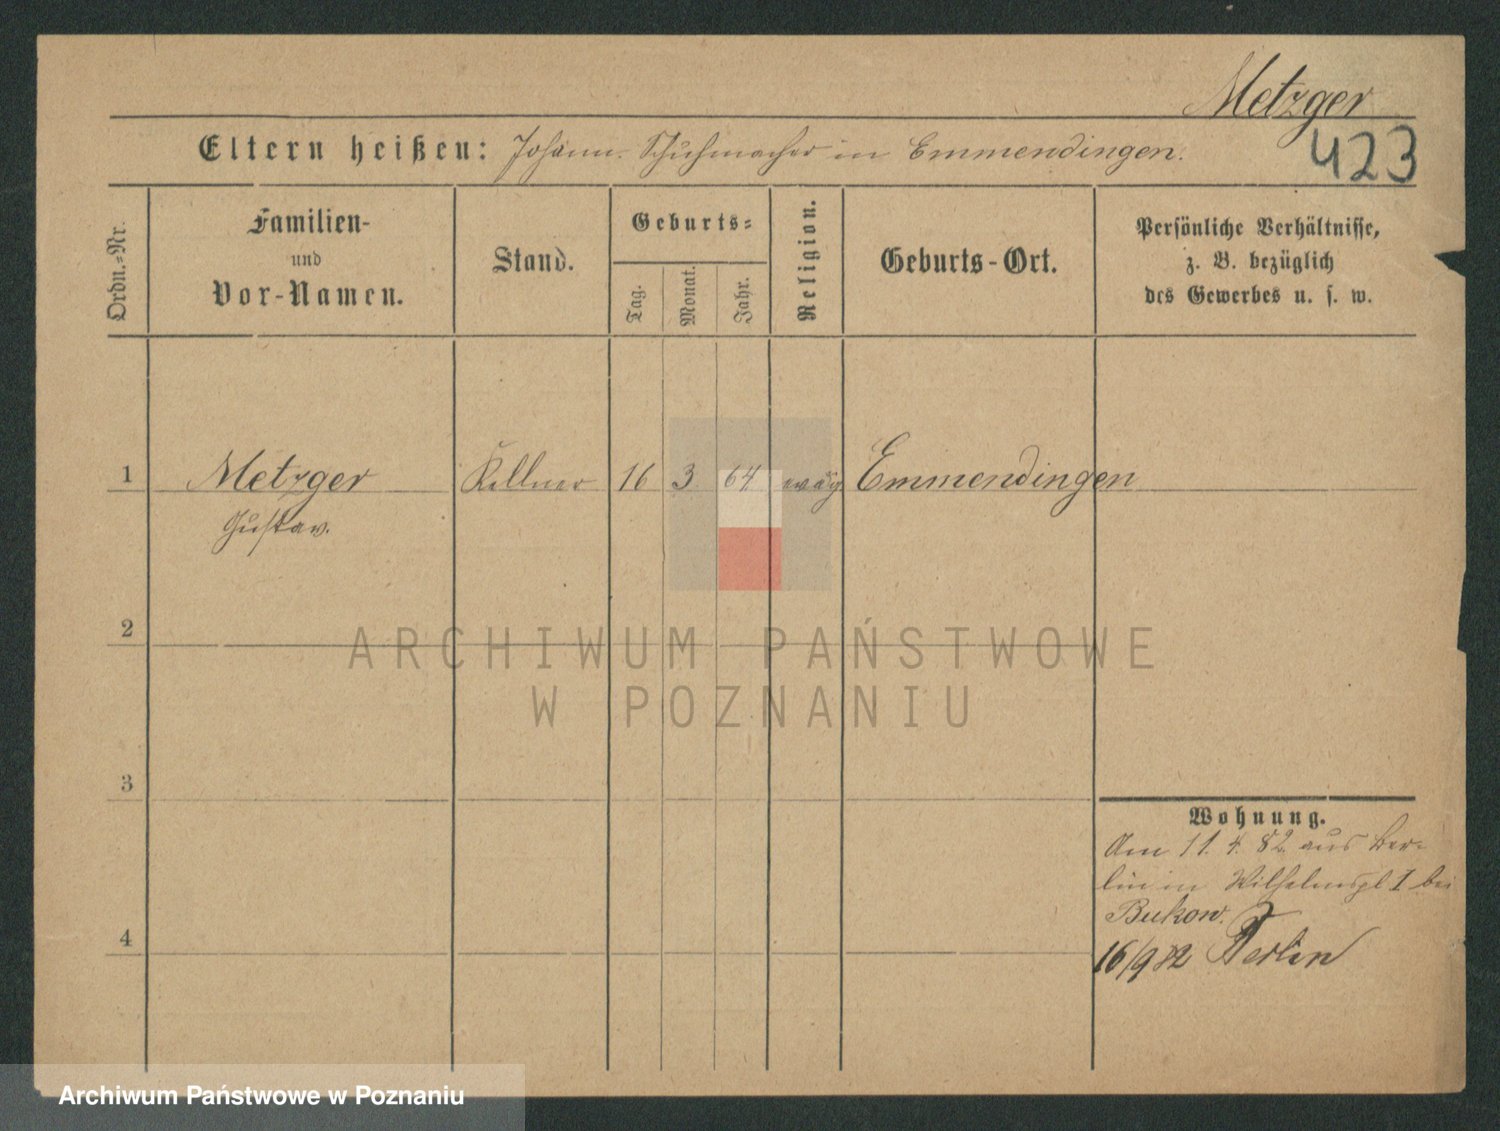 Metzger
423
Eltern heißen: Johann. Schuhmacher in Emmendingen.
Ordn.-Nr.
Familien-
und
Vor-Namen.
Stand.
Geburts-
Tag.
Monat.
Jahr.
Religion.
Geburts-Ort.
Persönliche Verhältnisse,
z. B. bezüglich
des Gewerbes u. s. w.
1 Metzger Kellner 16 3 64 eväg Emmendingen
Gustav.
2
ARCHIWUM PAŃSTWOWE
W POZNANIU
3
Wohnung.
Am 11. 4. 82 aus Ber-
lin in Wilhelmspl 1 bei
Bukow.
4
16/9 82 Berlin
Archiwum Państwowe w Poznaniu